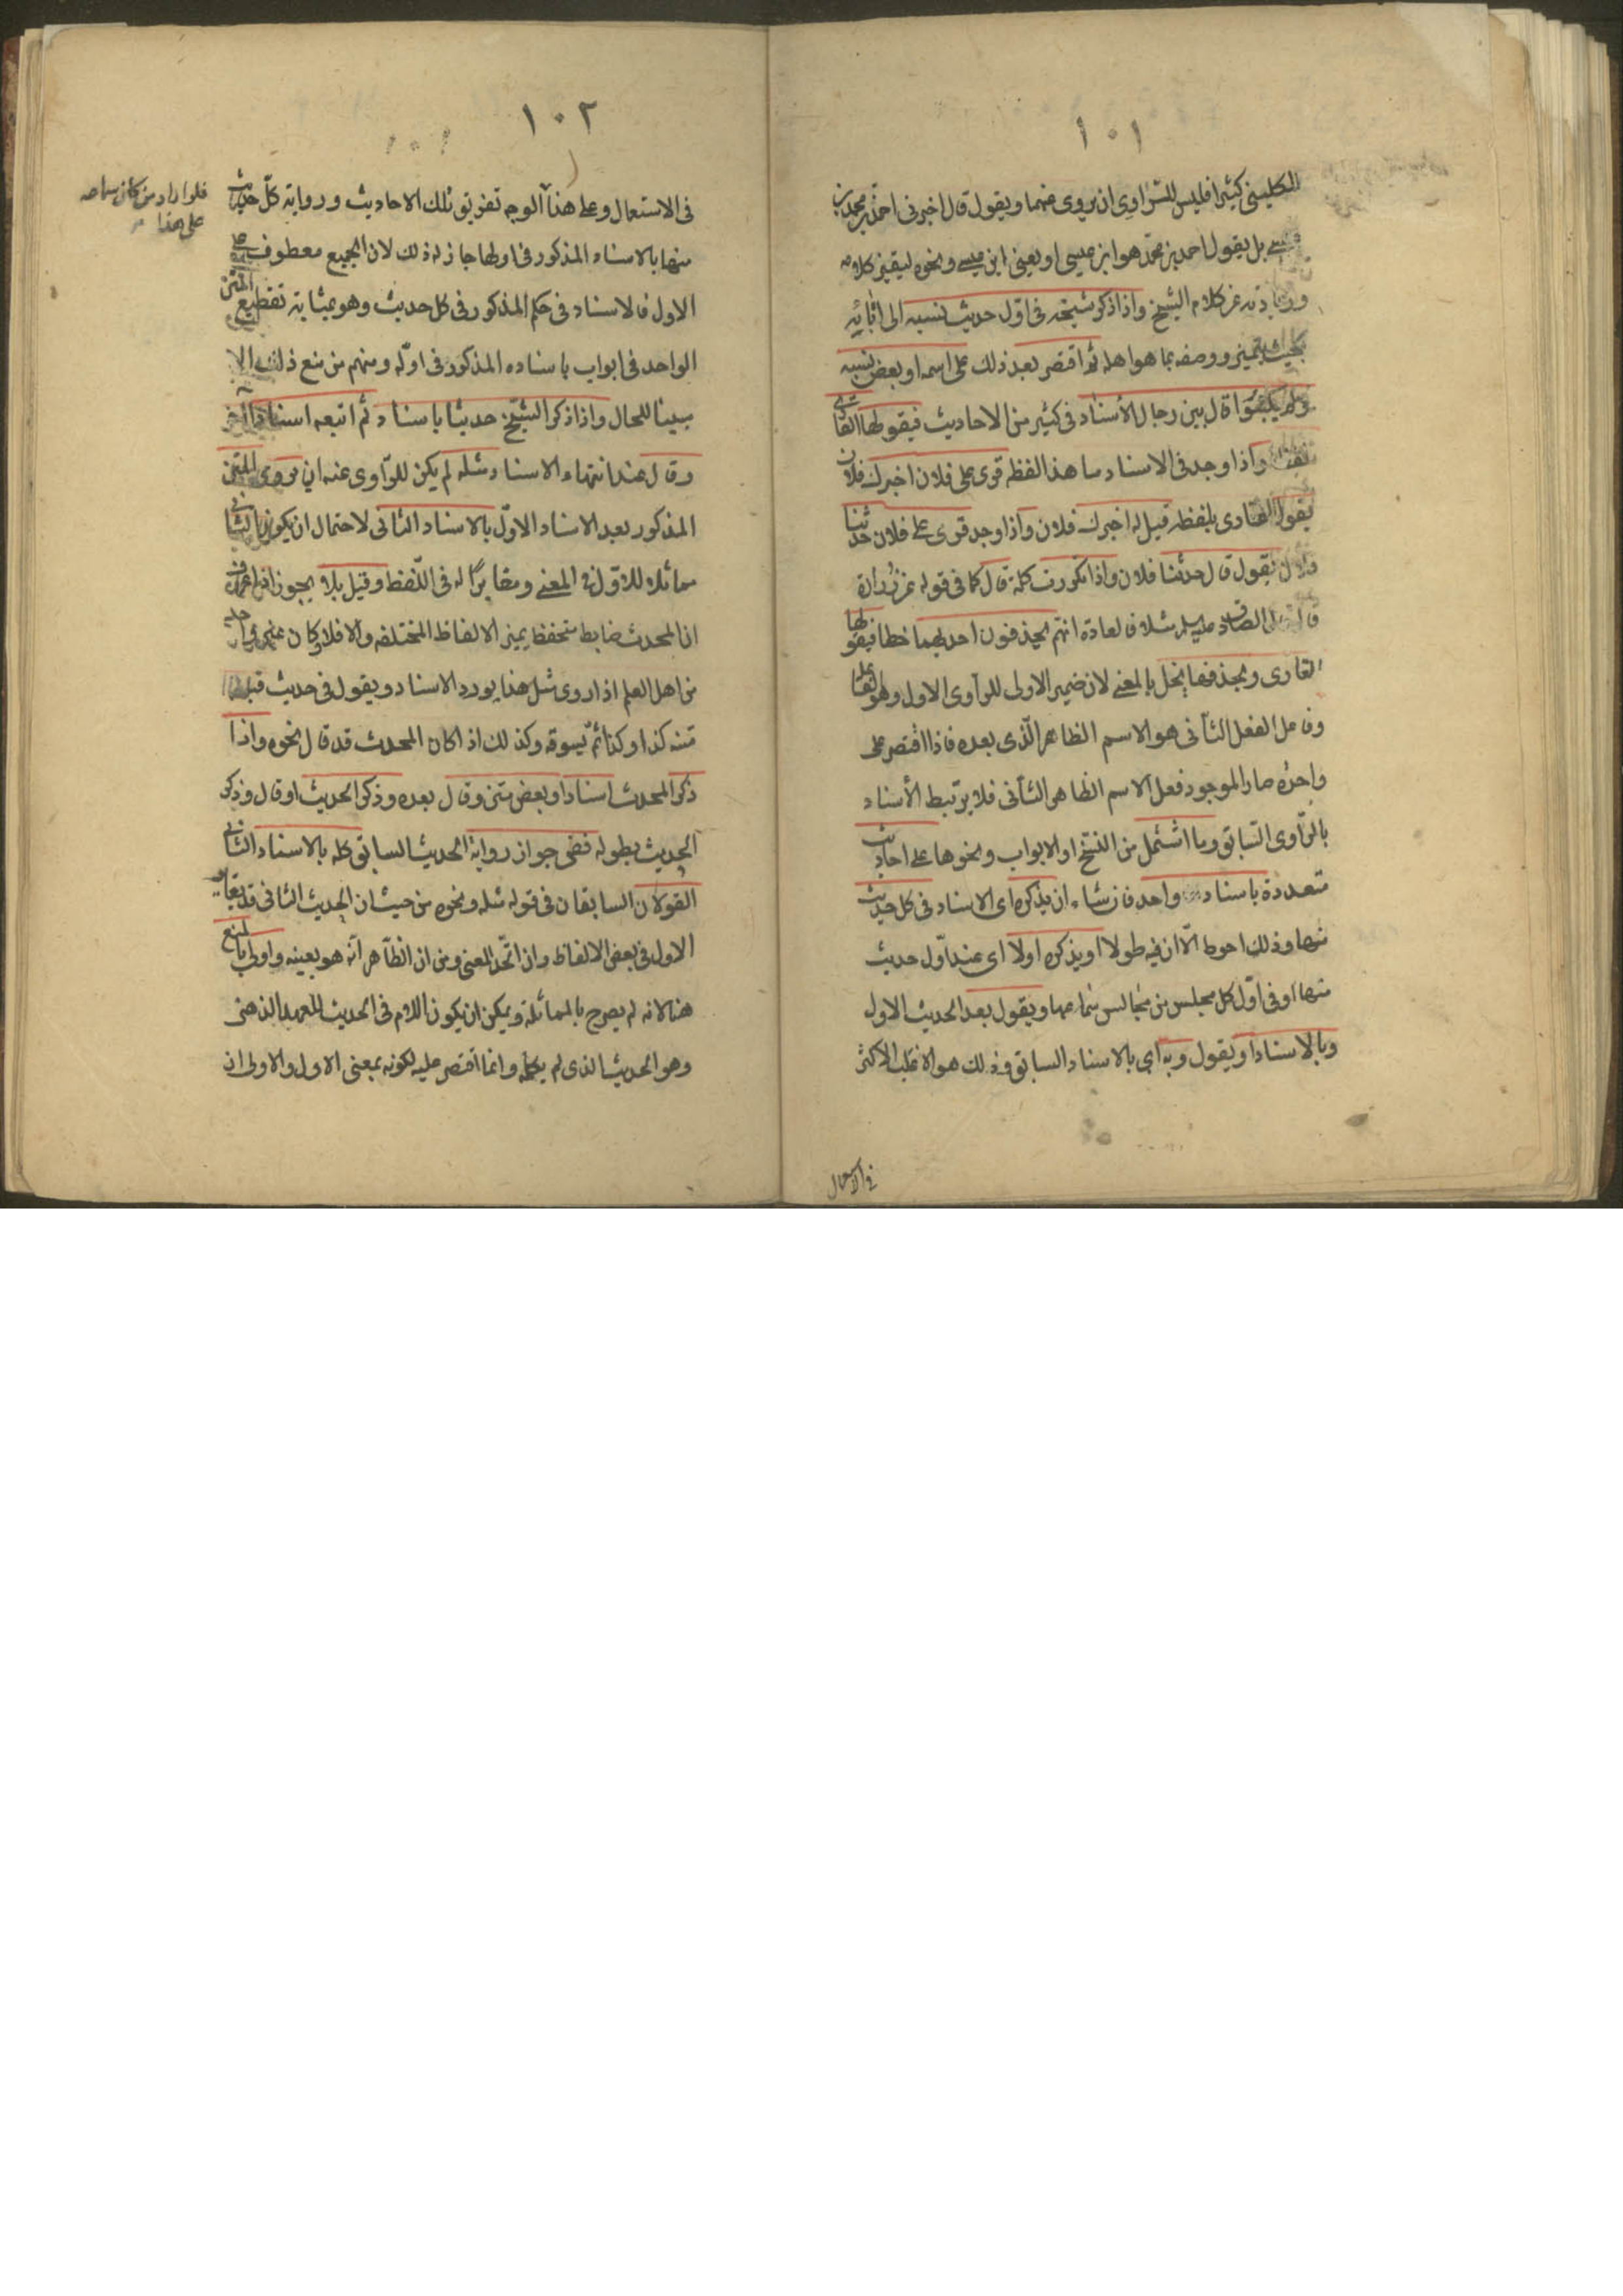 ١٠١
الكليني كثيرا فليس للراوي ان يروي عنهما ويقول قال اخبرني احمد بن محمد بن
عيسى بل يقول احمد بن محمد هو ابن عيسى او يعني ابن عيسى ونحوه ليتميز كلامه
وزيادته عن كلام الشيخ واذا ذكر شيخه في اول حديث نسبه الى آبائه
بحيث يتميز ووصفه بما هو اهله ثم اقتصر بعد ذلك على اسمه او بعض نسبه
ولم يكتبوا قال بين رجال الأسناد في كثير من الاحاديث فيقولها القاري
لفظا واذا وجد في الاسناد ما هذا لفظه قرى على فلان اخبرك فلان
يقول القاري بلفظه قيل له اخبرك فلان واذا وجد قرى على فلان حدثنا
فلان يقول قال حدثنا فلان واذا تكررت كلمة قال كما في قوله عن زرارة
قال قال الصادق عليه السلم مثلا فالعادة انهم يحذفون احديهما خطا فيقولها
القاري وبحذفها يخل بالمعنى لان ضمير الاولى للراوي الاول وهو الفاعل
وفاعل الفعل الثاني هو الاسم الظاهر الذي بعده فاذا اقتصر على
واحدة صار الموجود فعل الاسم الظاهر الثاني فلا يرتبط الأسناد
بالراوي السابق وما اشتمل من النسخ او الابواب ونحوها على احاديث
متعددة باسناد واحد فان شاء ان يذكره اي الاسناد في كل حديث
منها وذلك احوط الا ان فيه طولا او يذكره اولا اي عند اول حديث
منها او في اول كل مجلس من مجالس سماعها ويقول بعد الحديث الاول
وبالاسناد او يقول وبه اي بالاسناد السابق وذلك هو الاغلب الاكثر
في الاستعمال
١٠٢
في الاستعمال وعلى هذا الوجه تفريق تلك الاحاديث ورواية كل حديث
منها بالاسناد المذكور في اولها جاز له ذلك لان الجميع معطوف على
الاول فالاسناد في حكم المذكور في كل حديث وهو بمثابة تقطيع المتن
الواحد في ابواب باسناده المذكور في اوله ومنهم من منع ذلك الا
مبينا للحال واذا ذكر الشيخ حديثا باسناد ثم اتبعه اسنادا آخر
وقال عند انتهاء الاسناد مثله لم يكن للراوي عنه ان يروي المتن
المذكور بعد الاسناد الاول بالاسناد الثاني لاحتمال ان يكون الثاني
مماثلا للاول في المعنى ومغايرا له في اللفظ وقيل بلا يجوز اذا عرف
ان المحدث ضابط متحفظ يميز الالفاظ المختلفه والا فلا وكان غير واحد
من اهل العلم اذا روى مثل هذا يورد الاسناد ويقول في حديث قبله
متنه كذا وكذا ثم يسوقه وكذلك اذا كان المحدث قد قال نحوه واذا
ذكر المحدث اسنادا وبعض متن وقال بعده وذكر الحديث او قال وذكر
الحديث بطوله ففي جواز رواية الحديث السابق كله بالاسناد الثاني
القولان السابقان في قوله مثله ونحوه من حيث ان الحديث الثاني قد يغاير
الاول في بعض الالفاظ وان اتحد المعنى ومن ان الظاهر انه هو بعينه واولى بالمنع
هنا لانه لم يصرح بالمماثلة ويمكن ان يكون اللام في الحديث للعهد الذهني
وهو الحديث الذي لم يكمله وانما اقتصر عليه لكونه بمعنى الاول والاولى ان
فلو اراد من كان سماعه
على هذا